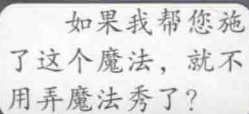 如果我帮您施
了这个魔法，就不
用弄魔法秀了？